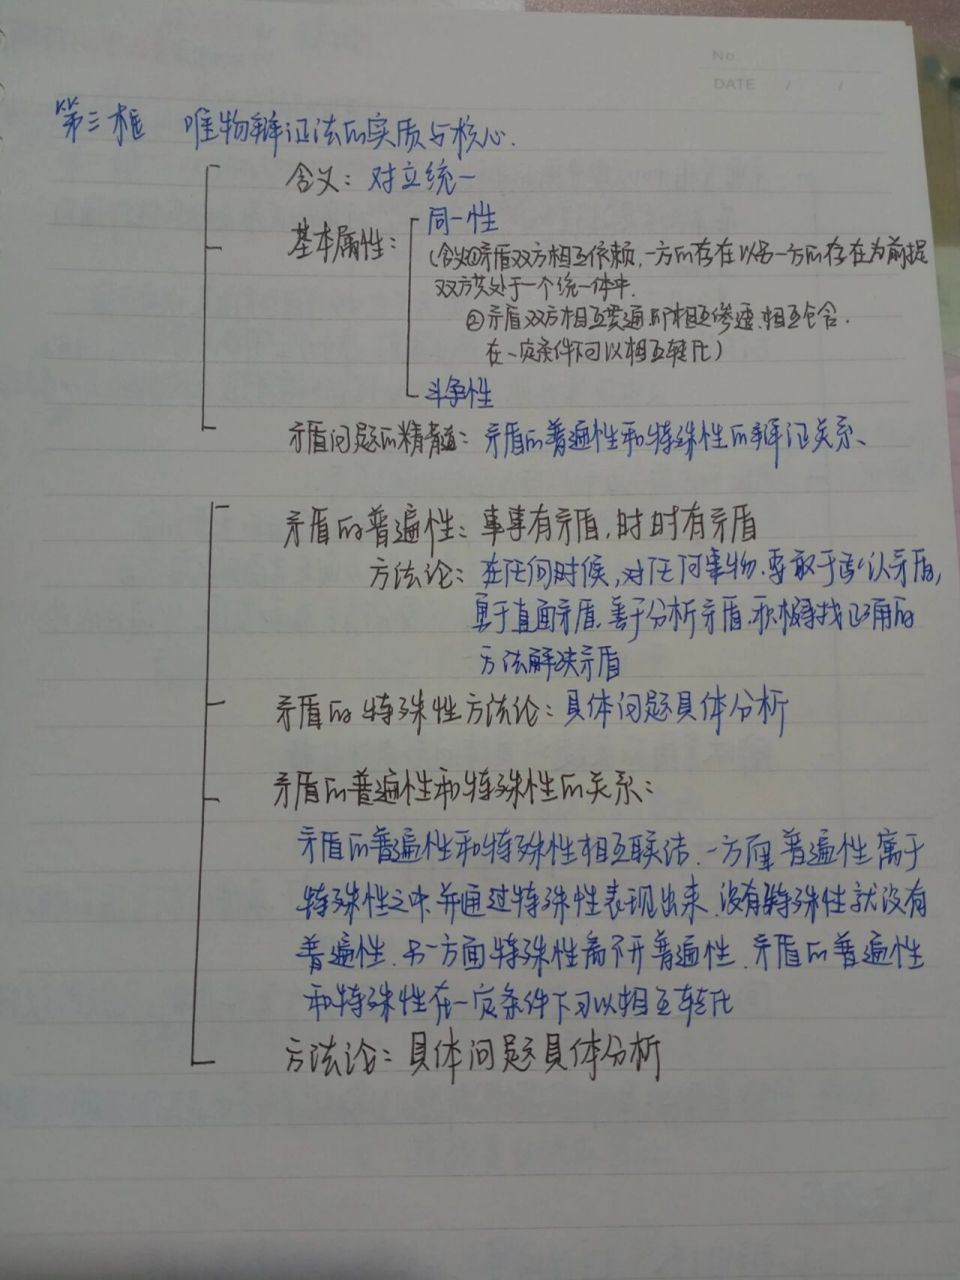 No.
DATE / /
第三框 唯物辩证法的实质与核心.
含义：对立统一
基本属性：
同一性
(含义①矛盾双方相互依赖,一方的存在以另一方的存在为前提
双方共处于一个统一体中.
②矛盾双方相互贯通即相互渗透.相互包含.
在一定条件下可以相互转化)
斗争性
矛盾问题的精髓：矛盾的普遍性和特殊性的辩证关系、
矛盾的普遍性：事事有矛盾,时时有矛盾
方法论：在任何时候,对任何事物.要敢于承认矛盾,
勇于直面矛盾.善于分析矛盾.积极寻找正确的
方法解决矛盾
矛盾的特殊性方法论：具体问题具体分析
矛盾的普遍性和特殊性的关系：
矛盾的普遍性和特殊性相互联结.一方面普遍性寓于
特殊性之中.并通过特殊性表现出来.没有特殊性就没有
普遍性.另一方面特殊性离不开普遍性.矛盾的普遍性
和特殊性在一定条件下可以相互转化
方法论：具体问题具体分析